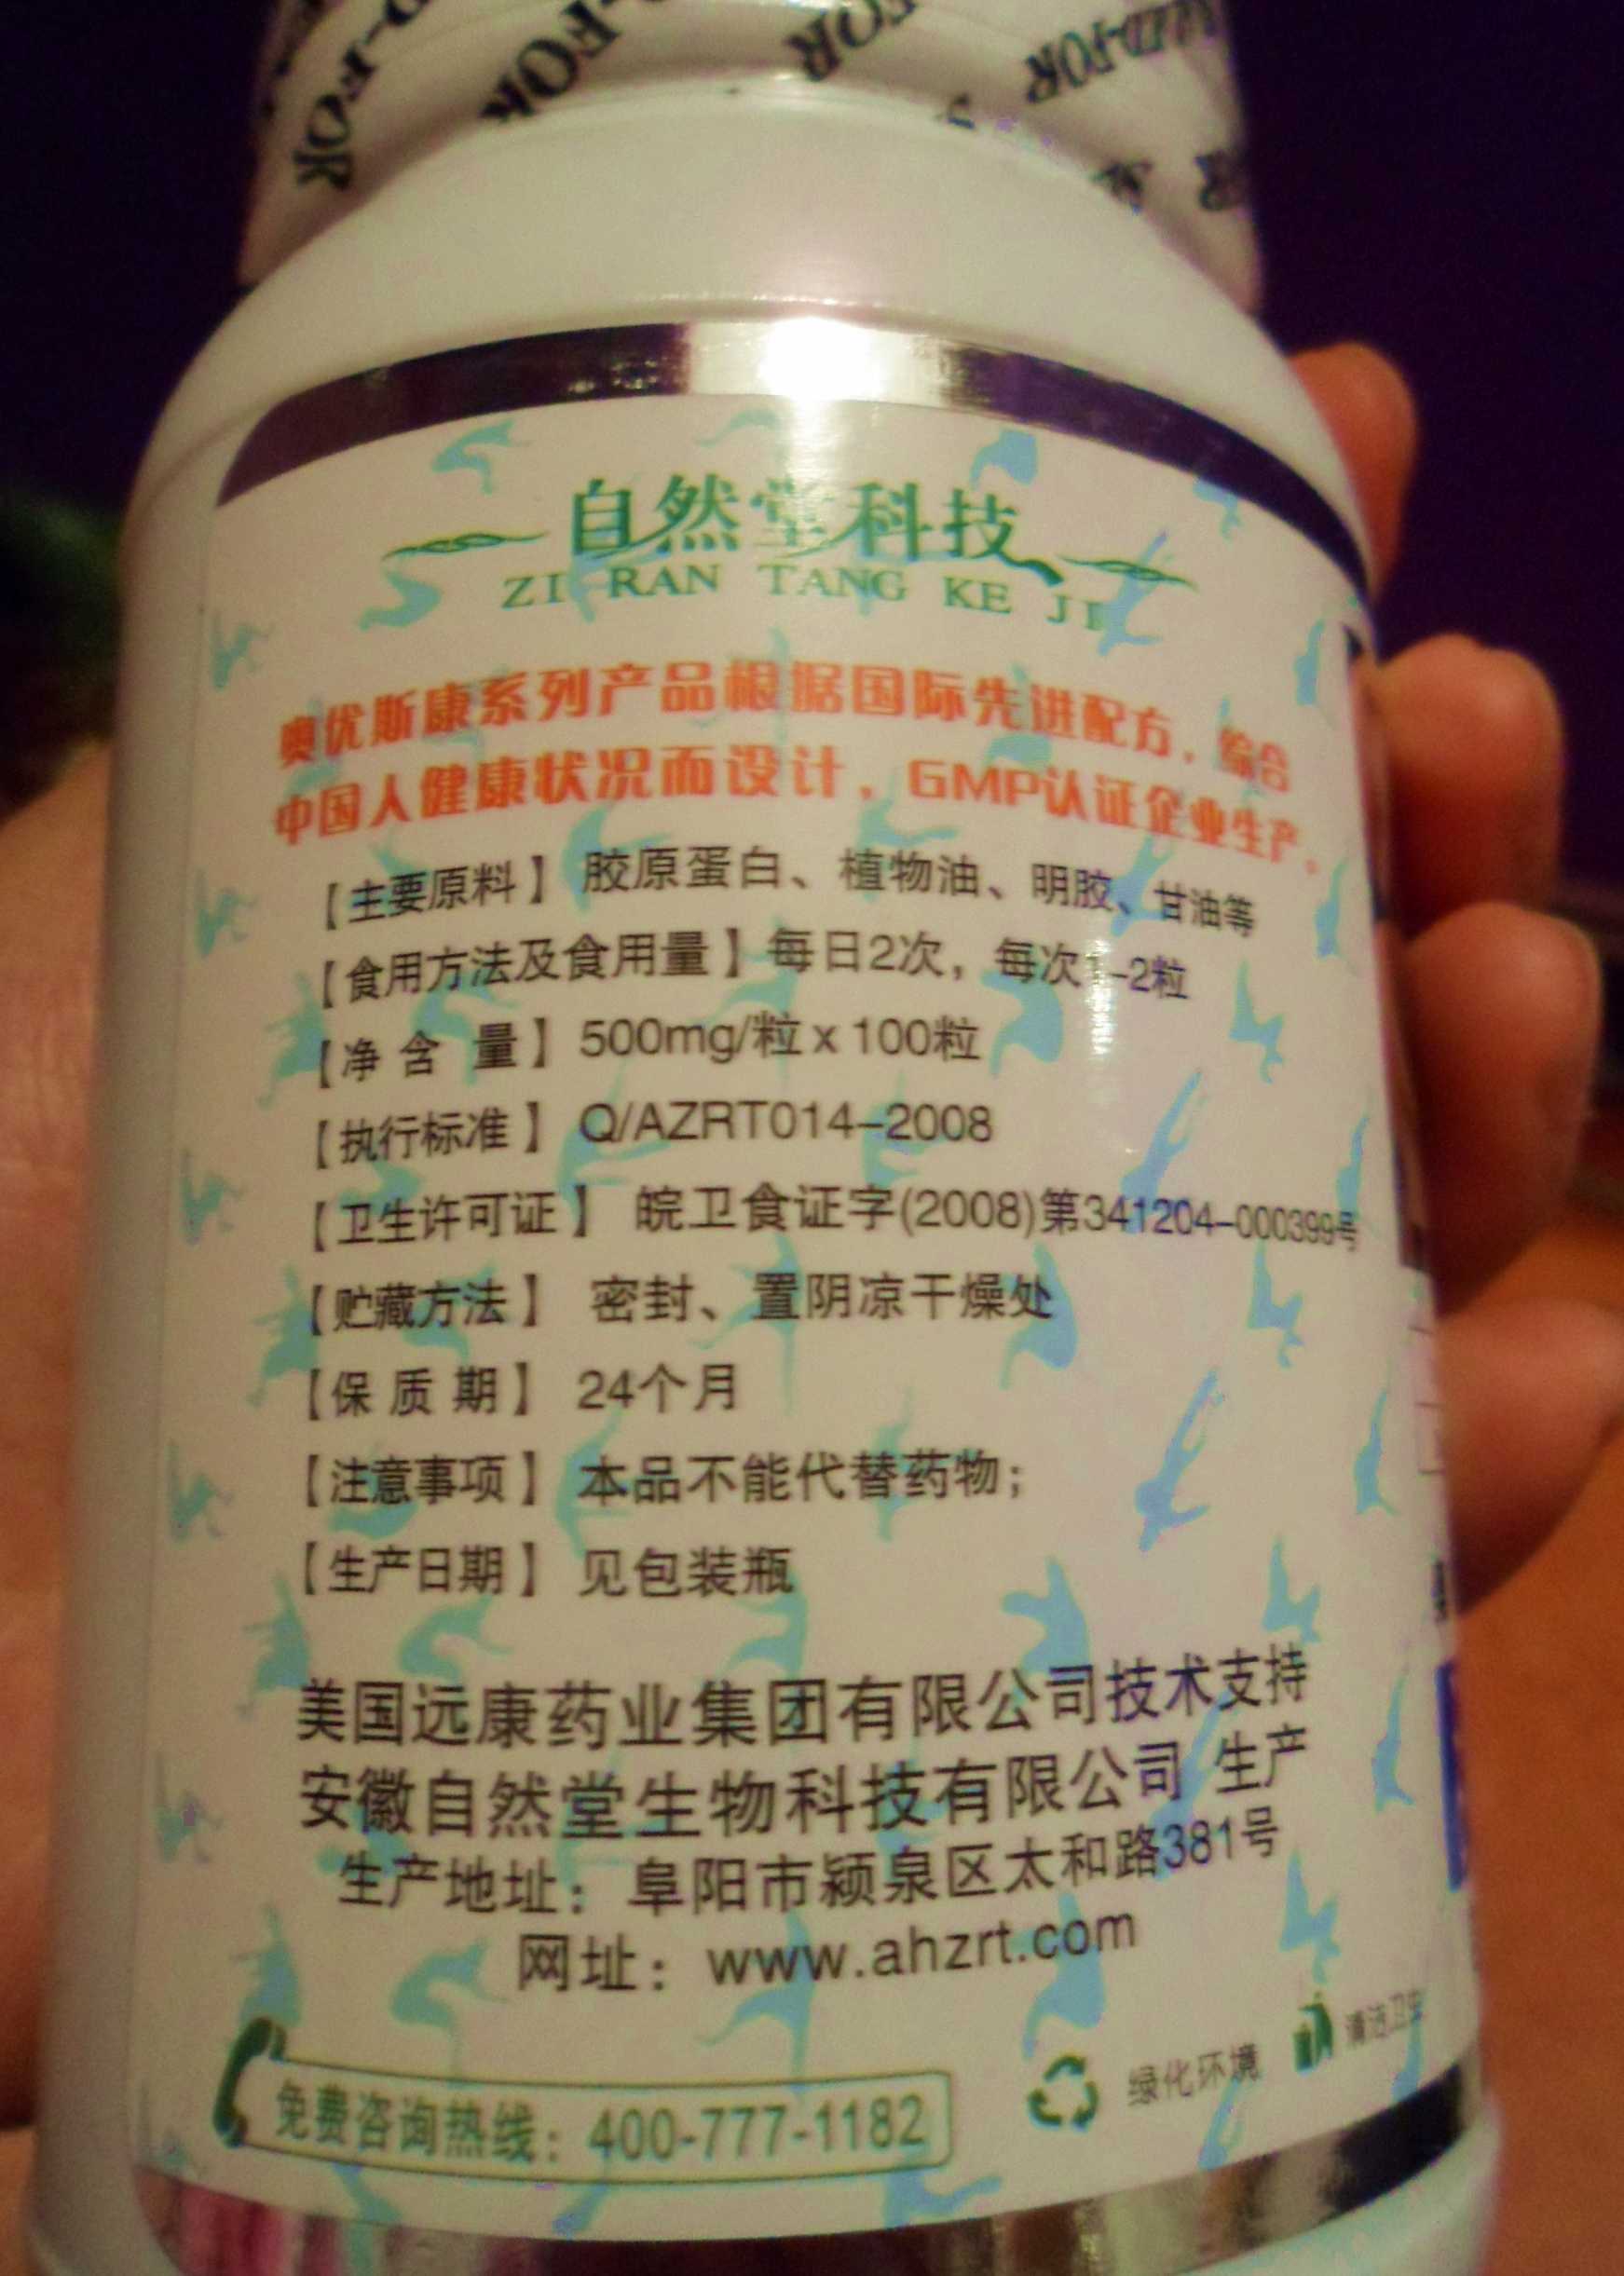 自然堂科技
ZI RAN TANG KE JI
奥优斯康系列产品根据国际先进配方，综合
中国人健康状况而设计，GMP认证企业生产。
【主要原料】 胶原蛋白、植物油、明胶、甘油等
【食用方法及食用量】每日2次，每次1-2粒
【净含量】 500mg/粒 x 100粒
【执行标准】 Q/AZRT014-2008
【卫生许可证】 皖卫食证字(2008)第341204-000399号
【贮藏方法】 密封、置阴凉干燥处
【保质期】 24个月
【注意事项】 本品不能代替药物;
【生产日期】 见包装瓶
美国远康药业集团有限公司技术支持
安徽自然堂生物科技有限公司 生产
生产地址：阜阳市颍泉区太和路381号
网址：www.ahzrt.com
绿化环境 清洁卫生
免费咨询热线：400-777-1182